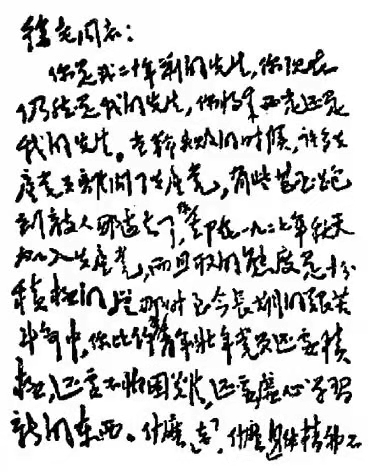 徐老同志：
你是我二十年前的先生，你现在
仍然是我的先生，你将来必定还是
我的先生。当革命失败的时候，许多共
产党员离开了共产党，有些甚至跑
到敌人那边去了，你却在一九二七年秋天
加入共产党，而且取的态度是十分
积极的。从那时至今长期的艰苦
斗争中，你比许多青年壮年党员还要积
极，还要不怕困难，还要虚心学习
新的东西。什么“老”，什么“身体精神不